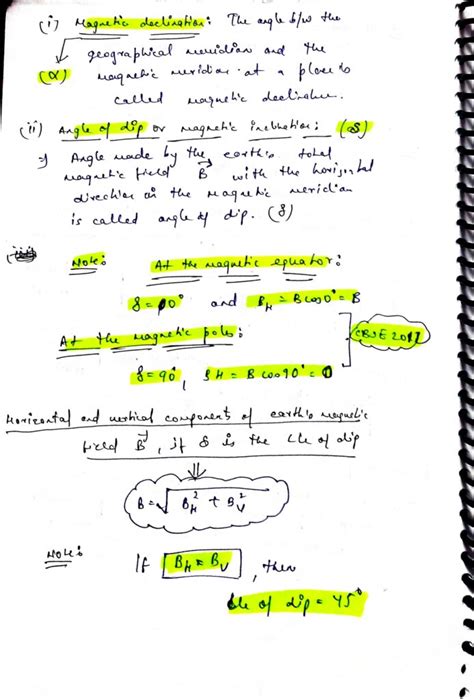 (i) Magnetic declination: The angle b/w the
geographical meridian and the
(α) magnetic meridian at a place is
called magnetic declination.
(ii) Angle of dip or magnetic inclination: (δ)
⇒ Angle made by the earth's total
magnetic field B with the horizontal
direction in the magnetic meridian
is called angle of dip. (δ)
Note: At the magnetic equator:
δ = 0° and B_H = B cos 0° = B
At the magnetic poles: CBSE
δ = 90°, BH = B cos 90° = 0
Horizontal and vertical components of earth's magnetic
field B, if δ is the ∠le of dip
⇓
B = √ B_H² + B_V²
Note: If B_H = B_V, then
∠le of dip = 45°